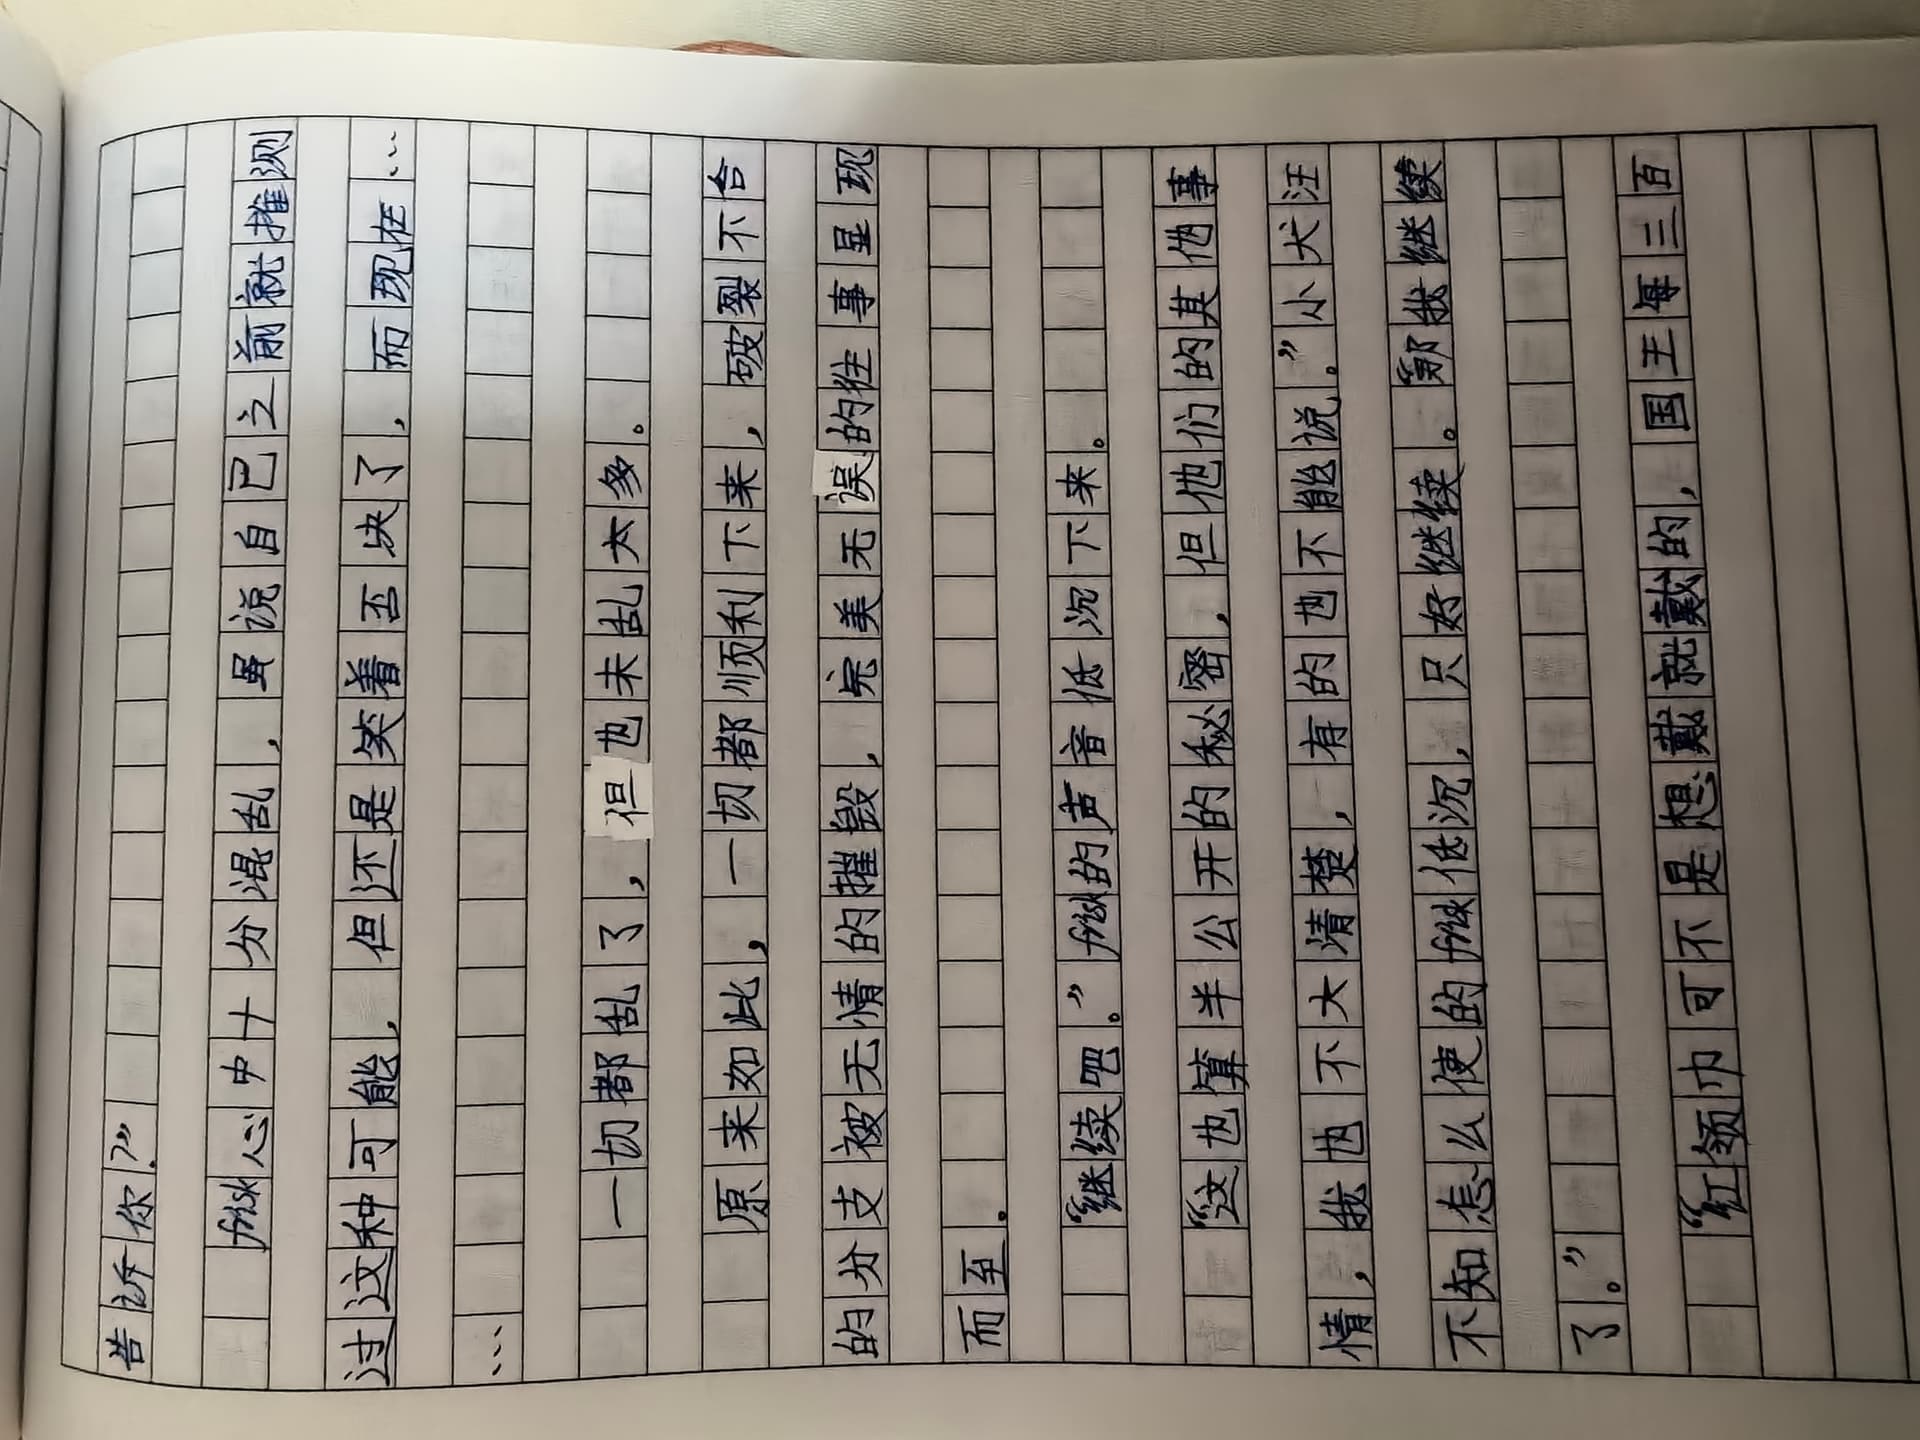 告诉你?”
frisk心中十分混乱,虽说自己之前就推测
过这种可能,但还是笑着否决了,而现在…
…
一切都乱了,但也未乱太多。
原来如此,一切都顺利下来,破裂不合
的分支被无情的摧毁,完美无误的往事显现
而至。
“继续吧。”frisk的声音低沉下来。
“这也算半公开的秘密,但他们的其他事
情,我也不大清楚,有的也不能说。”小犬汪
不知怎么使的frisk低沉,只好继续。“那我继续
了。”
“红领巾可不是想戴就戴的,国王每三百